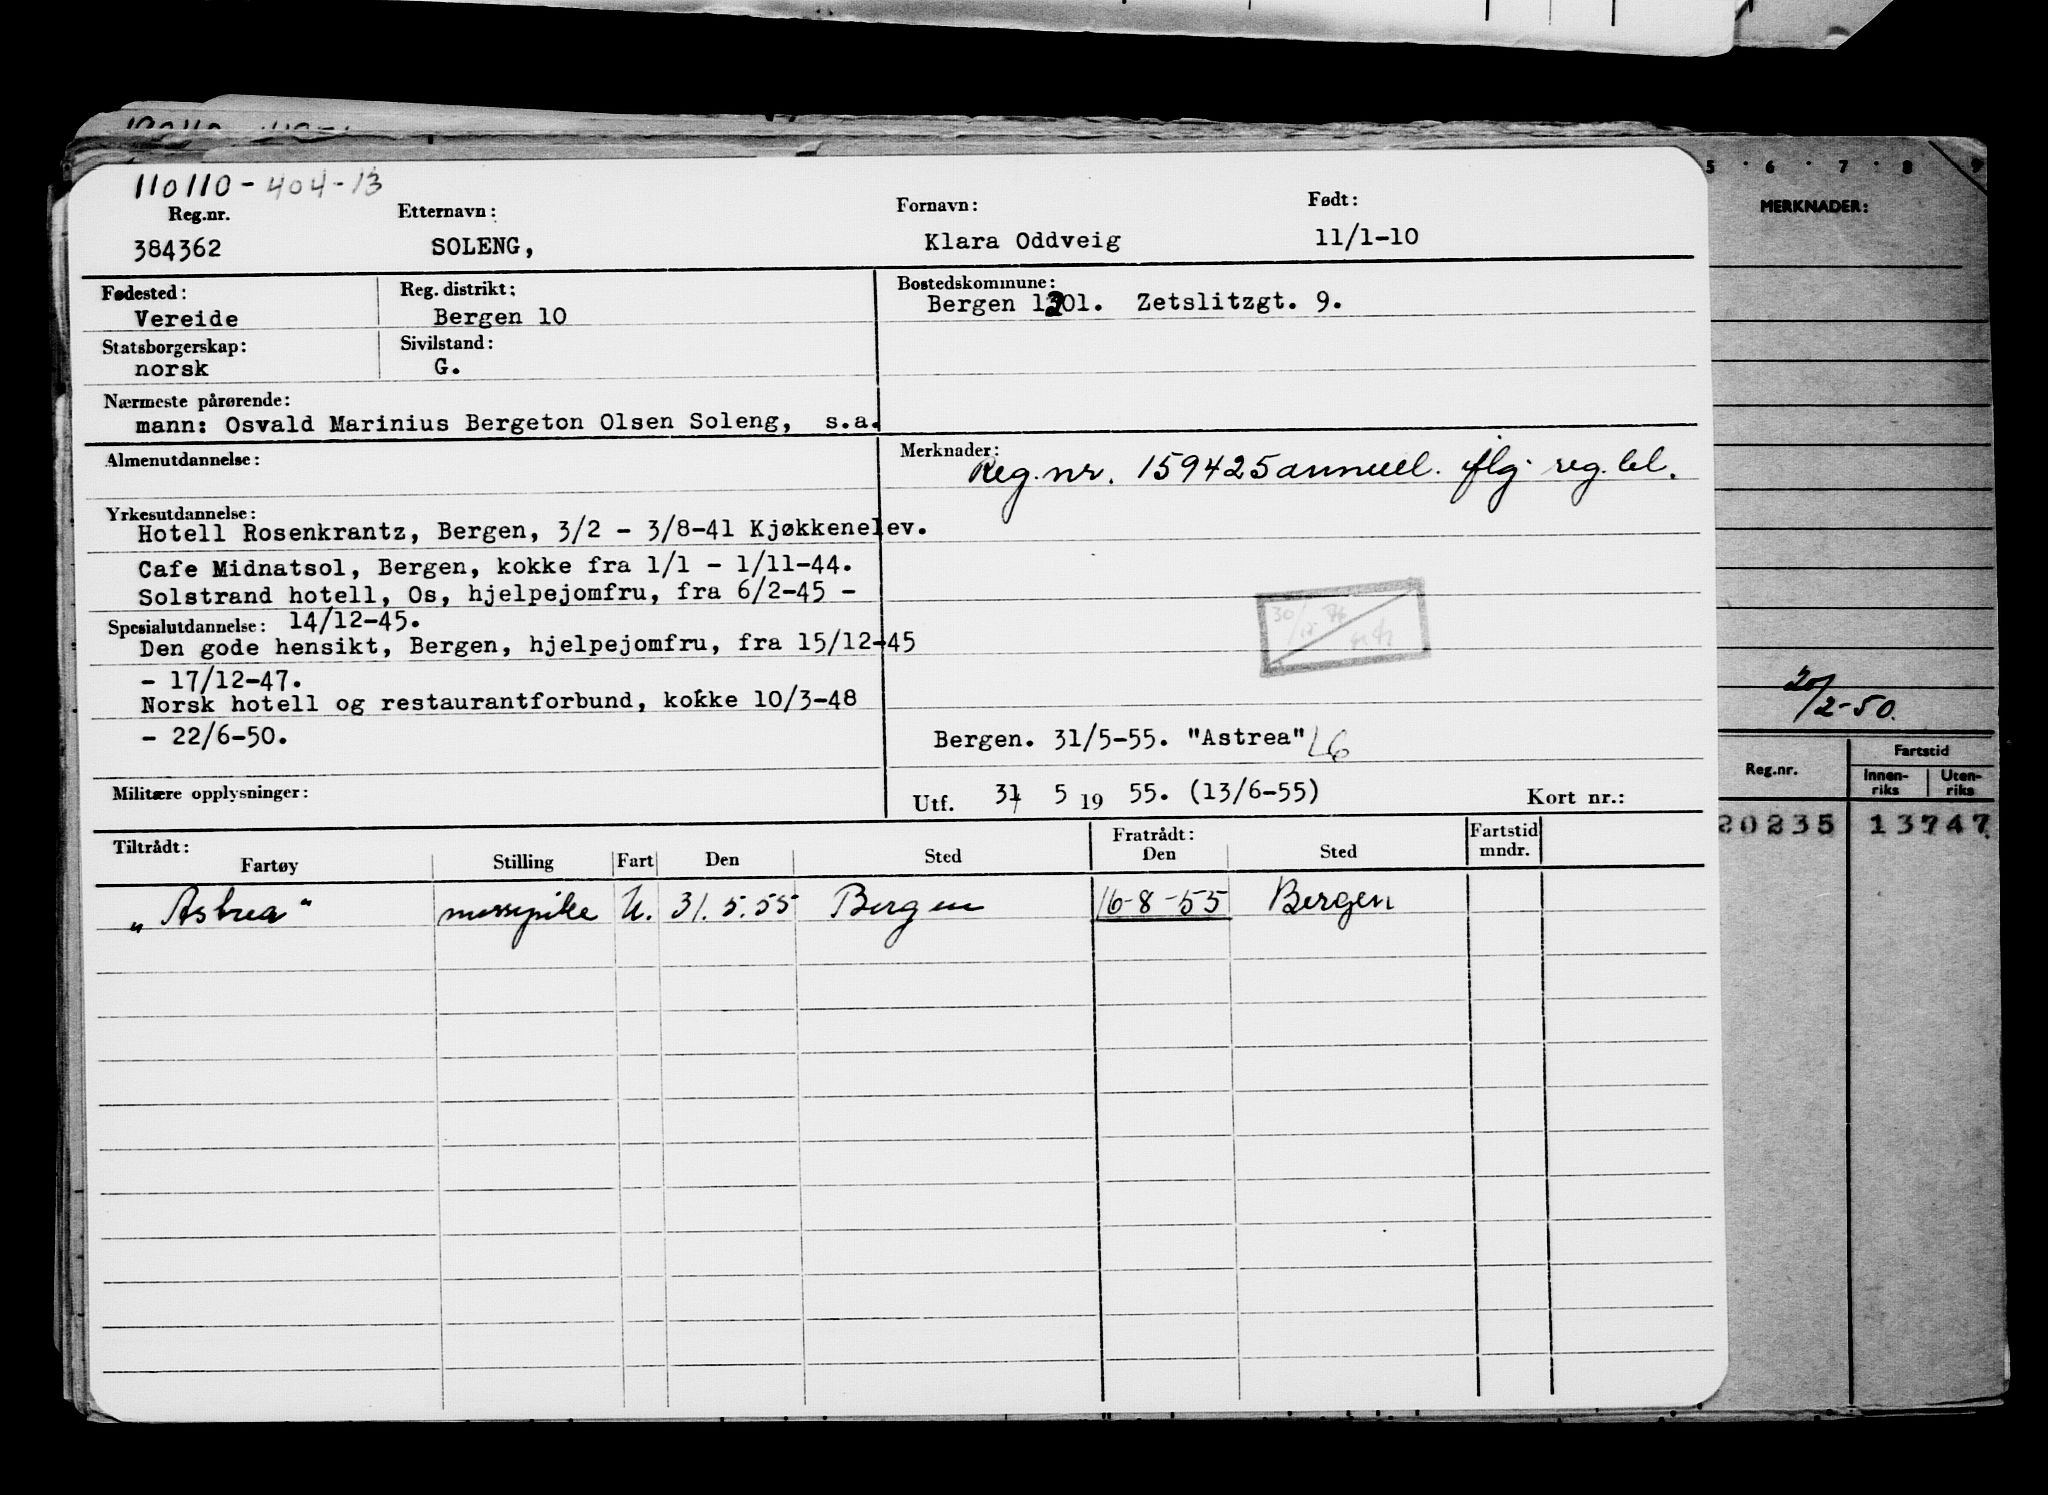 110110-404-13
Reg.nr. Etternavn: Fornavn: Født:
384362 SOLENG, Klara Oddveig 11/1-10
Fødested: Reg. distrikt: Bostedskommune:
Vereide Bergen 10 Bergen 1301. Zetslitzgt. 9.
Statsborgerskap: Sivilstand:
norsk G.
Nærmeste pårørende:
mann: Osvald Marinius Bergeton Olsen Soleng, s.a.
Almenutdannelse: Merknader:
Reg.nr. 159425 annuell. iflg. reg. bl.
Yrkesutdannelse:
Hotell Rosenkrantz, Bergen, 3/2 - 3/8-41 Kjøkkenelev.
Cafe Midnatsol, Bergen, kokke fra 1/1 - 1/11-44.
Solstrand hotell, Os, hjelpejomfru, fra 6/2-45 -
Spesialutdannelse: 14/12-45.
Den gode hensikt, Bergen, hjelpejomfru, fra 15/12-45
- 17/12-47.
Norsk hotell og restaurantforbund, kokke 10/3-48
- 22/6-50.
Bergen. 31/5-55. "Astrea" LG
Militære opplysninger: Utf. 31 5 19 55. (13/6-55) Kort nr.:
Tiltrådt: Fratrådt: Fartstid
Fartøy Stilling Fart Den Sted Den Sted mndr.
"Astrea" messepike U. 31.5.55 Bergen 16-8-55 Bergen
5 6 7 8 9
MERKNADER:
20/2-50.
Reg.nr. Fartstid
Innen-riks Uten-riks
20235 13747